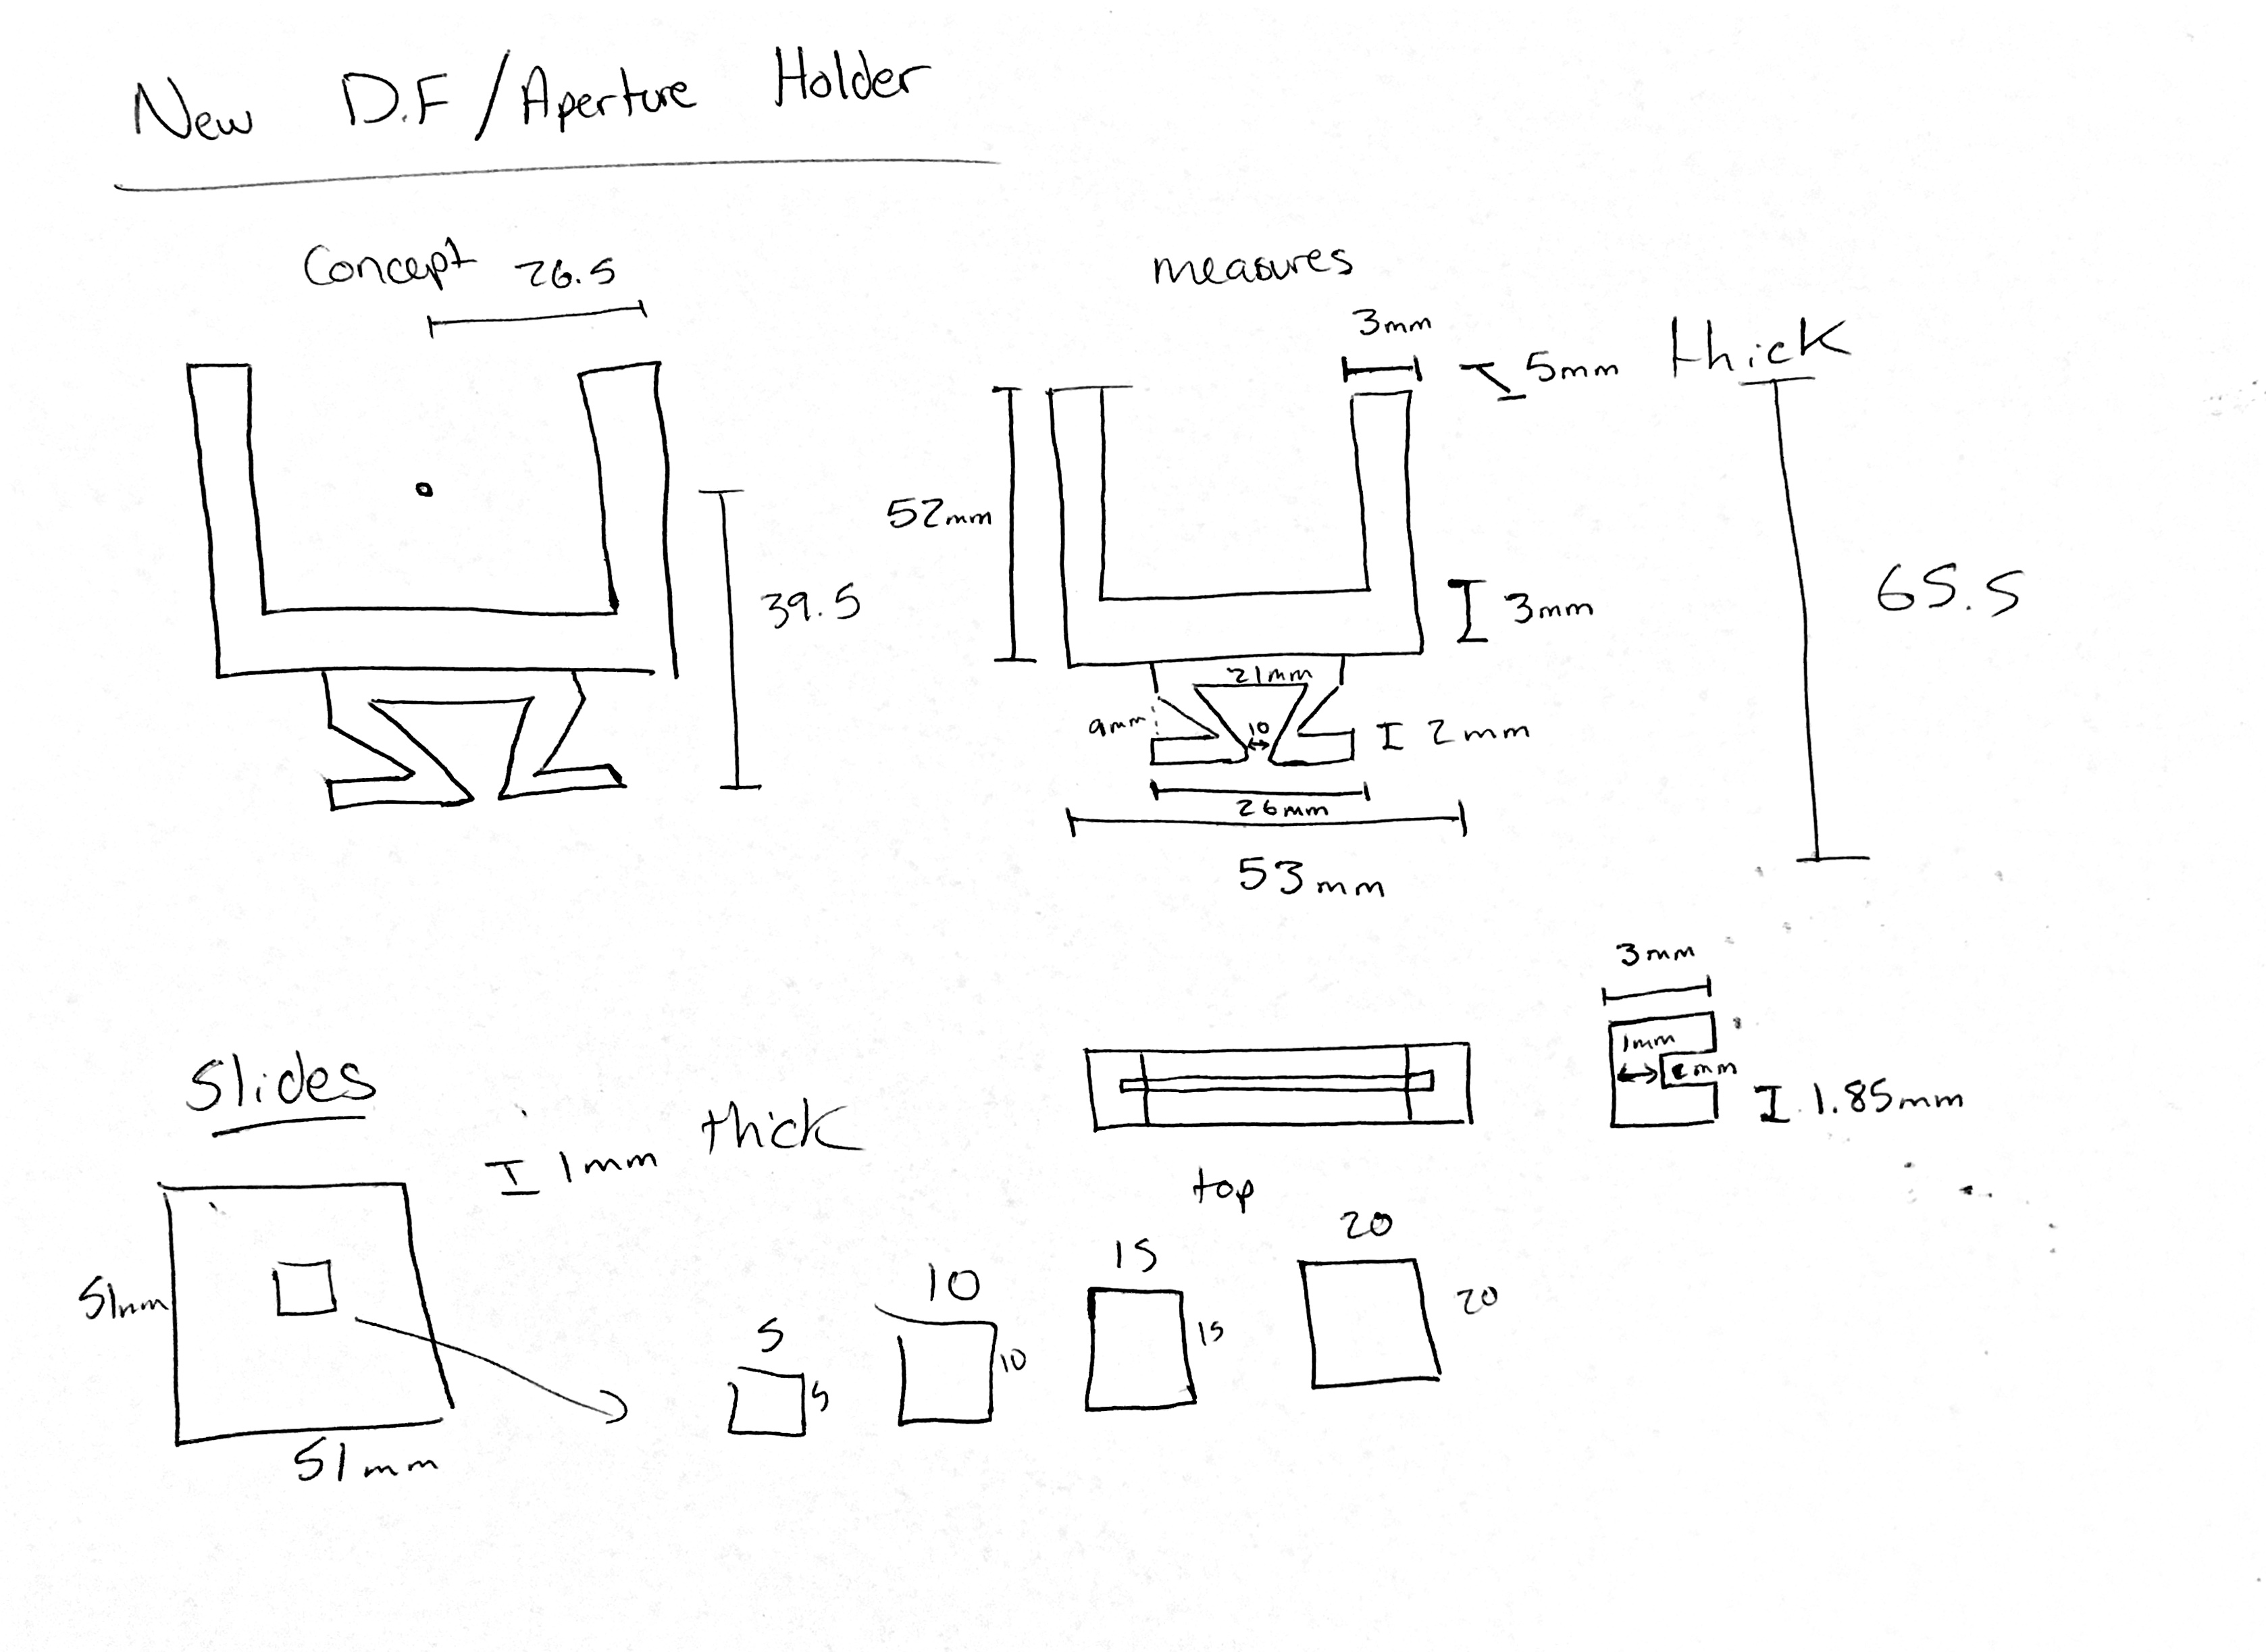 New D.F/Aperture Holder
Concept
26.5
39.5
measures
3mm
5mm thick
52mm
3mm
65.5
21mm
9mm
10
2mm
26mm
53mm
3mm
1mm
1.85mm
top
Slides
1mm thick
51mm
51mm
5
5
10
10
15
15
20
20